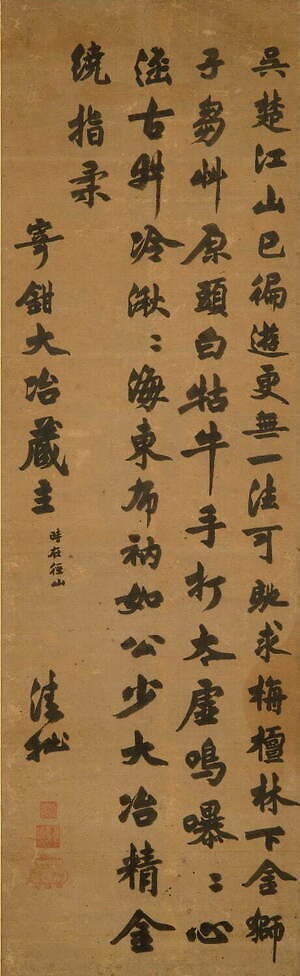 呉楚江山已徧遊更無一法可馳求栴檀林下金獅
子芻艸原頭白牯牛手打太虛鳴嚗〻心
涵古井冷湫〻海東布衲如公少大冶精金
繞指柔
寄鉗大冶藏主 時在徑山
清拙